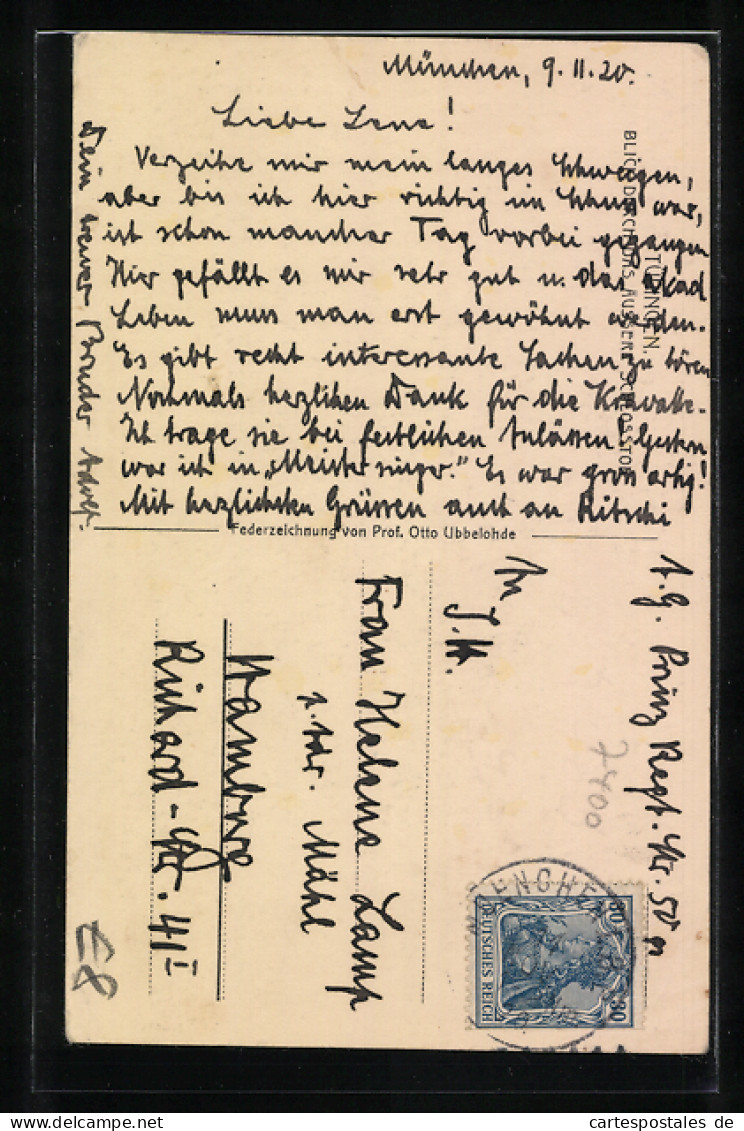 München, 9. 11. 20.
Liebe Lene!
Verzeihe mir mein langes Schweigen,
aber bis ich hier richtig im Schuss war,
ist schon mancher Tag vorbei gegangen
Hier gefällt es mir sehr gut u. das Akad
Leben muss man erst gewöhnt werden.
Es gibt recht interessante Sachen zu hören
Nochmals herzlichen Dank für die Kravatte.
Ich trage sie bei festlichen Anlässen. Gestern
war ich in „Meistersinger." Es war grossartig!
Mit herzlichsten Grüssen auch an Ritschi
Dein treuer Bruder Adolf.
TÜBINGEN.
BLICK DURCH DAS ÄUSSERE SCHLOSSTOR
Federzeichnung von Prof. Otto Ubbelohde
A. G. Prinz Regt. Str. 50
7400
An
I. H.
Frau Helene Lamp
z. Adr. Mähl
Hamburg
Richard-Str. 41 I
MUENCHEN
30 30
DEUTSCHES REICH
E8
cartespostales de